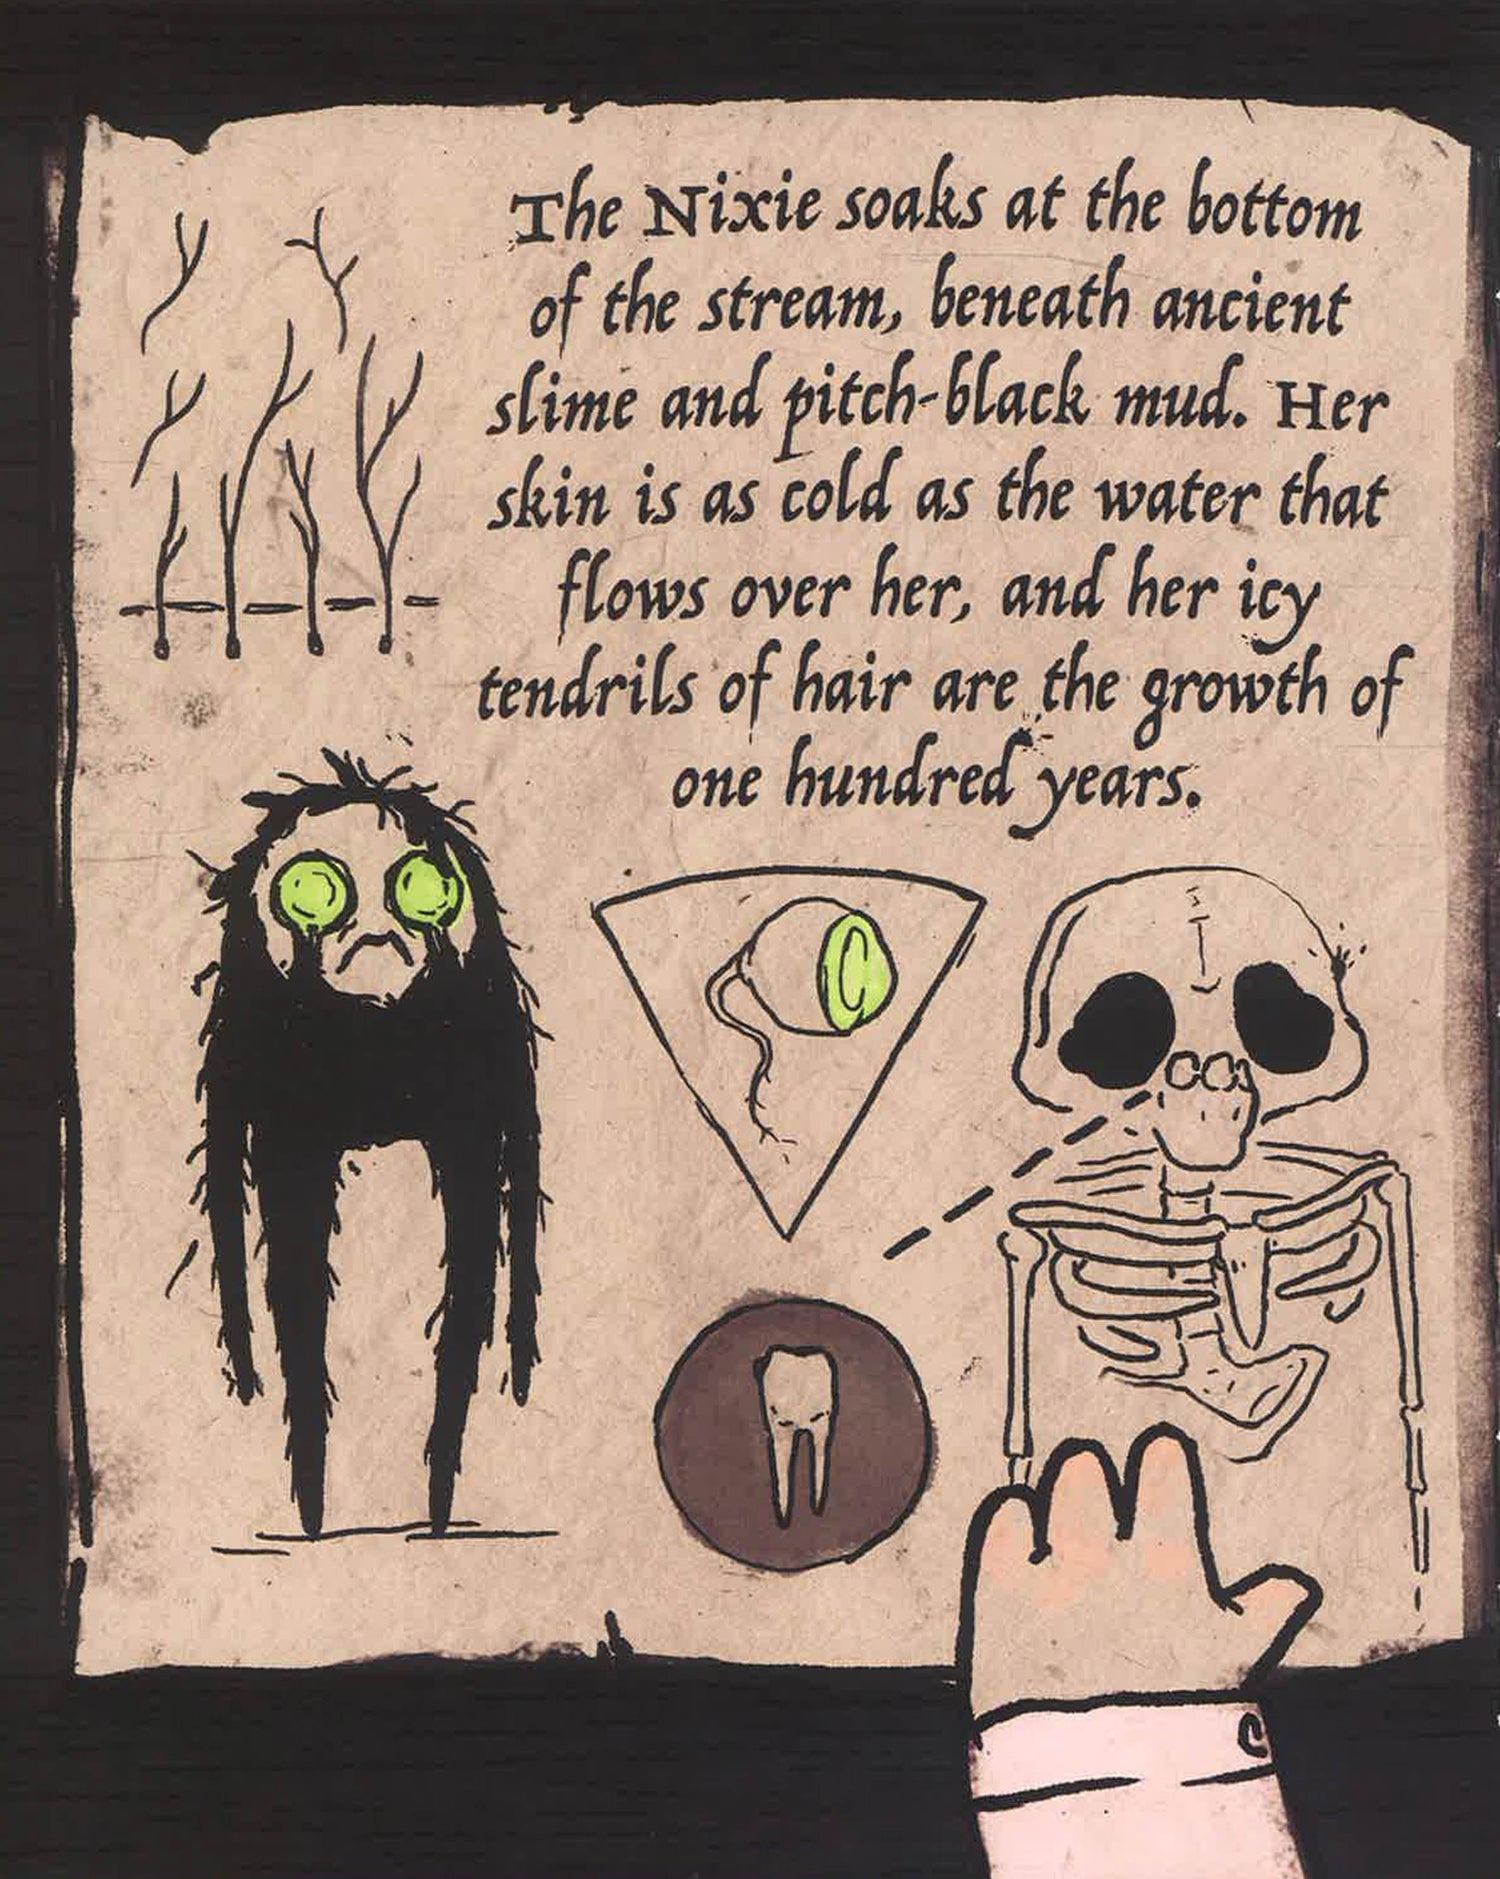 The Nixie soaks at the bottom
of the stream, beneath ancient
slime and pitch-black mud. Her
skin is as cold as the water that
flows over her, and her icy
tendrils of hair are the growth of
one hundred years.